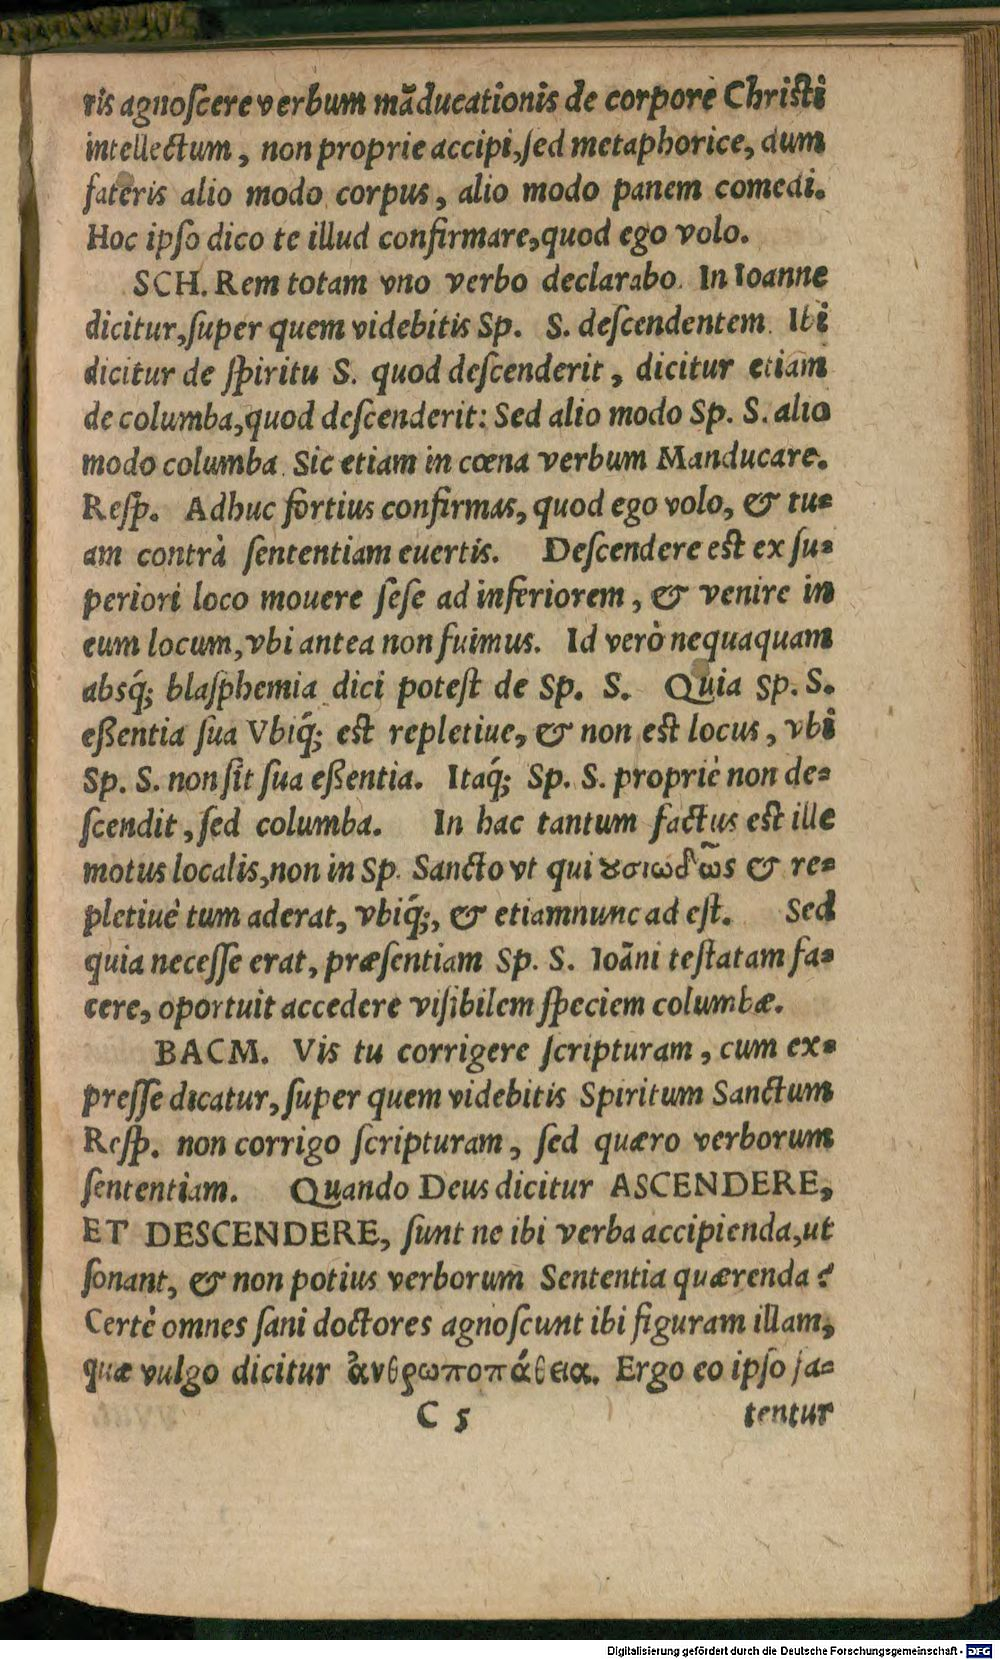 ris agnoſcere verbum mãducationis de corpore Chriſti
intellectum, non proprie accipi, ſed metaphorice, dum
fateris alio modo corpus, alio modo panem comedi.
Hoc ipſo dico te illud confirmare, quod ego volo.
SCH. Rem totam vno verbo declarabo. In Ioanne
dicitur, ſuper quem videbitis Sp. S. deſcendentem. Ibi
dicitur de ſpiritu S. quod deſcenderit, dicitur etiam
de columba, quod deſcenderit: Sed alio modo Sp. S. alio
modo columba. Sic etiam in cœna verbum Manducare.
Reſp. Adhuc fortius confirmas, quod ego volo, & tu-
am contrà ſententiam euertis. Deſcendere eſt ex ſu-
periori loco mouere ſeſe ad inferiorem, & venire in
eum locum, vbi antea non fuimus. Id verò nequaquam
absq́; blaſphemia dici poteſt de Sp. S. Quia Sp. S.
eßentia ſua Vbiq́; eſt repletiue, & non eſt locus, vbi
Sp. S. non ſit ſua eßentia. Itaq́; Sp. S. propriè non de-
ſcendit, ſed columba. In hac tantum factus eſt ille
motus localis, non in Sp. Sancto vt qui ȣσιωδῶς & re-
pletiuè tum aderat, vbiq́;, & etiamnunc ad eſt. Sed
quia neceſſe erat, præſentiam Sp. S. Ioãni teſtatam fa-
cere, oportuit accedere viſibilem ſpeciem columbæ.
BACM. Vis tu corrigere ſcripturam, cum ex-
preſſe dicatur, ſuper quem videbitis Spiritum Sanctum
Reſp. non corrigo ſcripturam, ſed quæro verborum
ſententiam. Quando Deus dicitur ASCENDERE,
ET DESCENDERE, ſunt ne ibi verba accipienda, ut
ſonant, & non potius verborum Sententia quærenda?
Certè omnes ſani doctores agnoſcunt ibi figuram illam,
quæ vulgo dicitur ἀνθρωποπάθεια. Ergo eo ipſo fa-
C 5 tentur
Digitalisierung gefördert durch die Deutsche Forschungsgemeinschaft - DFG